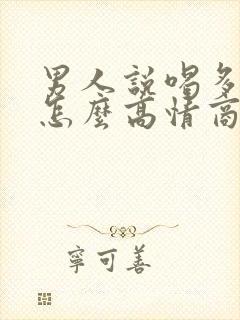 男人說喝多
怎麼高情商
寧可善